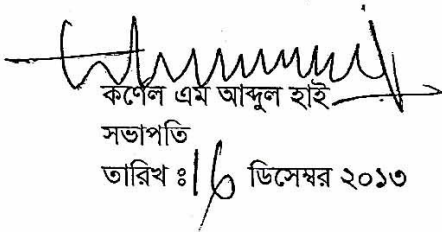 কর্ণেল এম আব্দুল হাই
সভাপতি
তারিখ ঃ 16 ডিসেম্বর ২০১৩